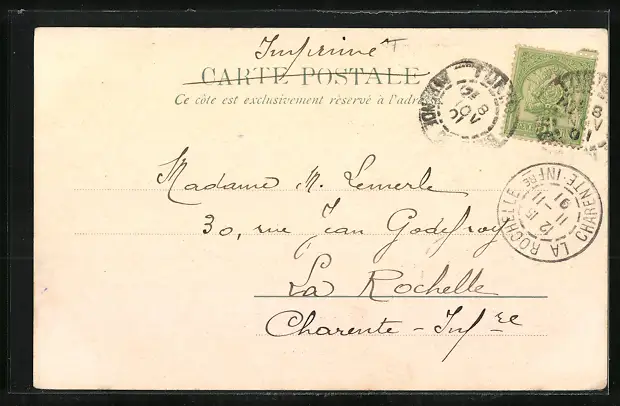 Imprimé
CARTE POSTALE
Ce côte est exclusivement réservé à l'adre
8
NOV
01
8
Madame M. Lemerle
30, rue Jean Godefroy
LA ROCHELLE
CHARENTE-INFRE
12 15
11 -11
01
La Rochelle
Charente - Infre